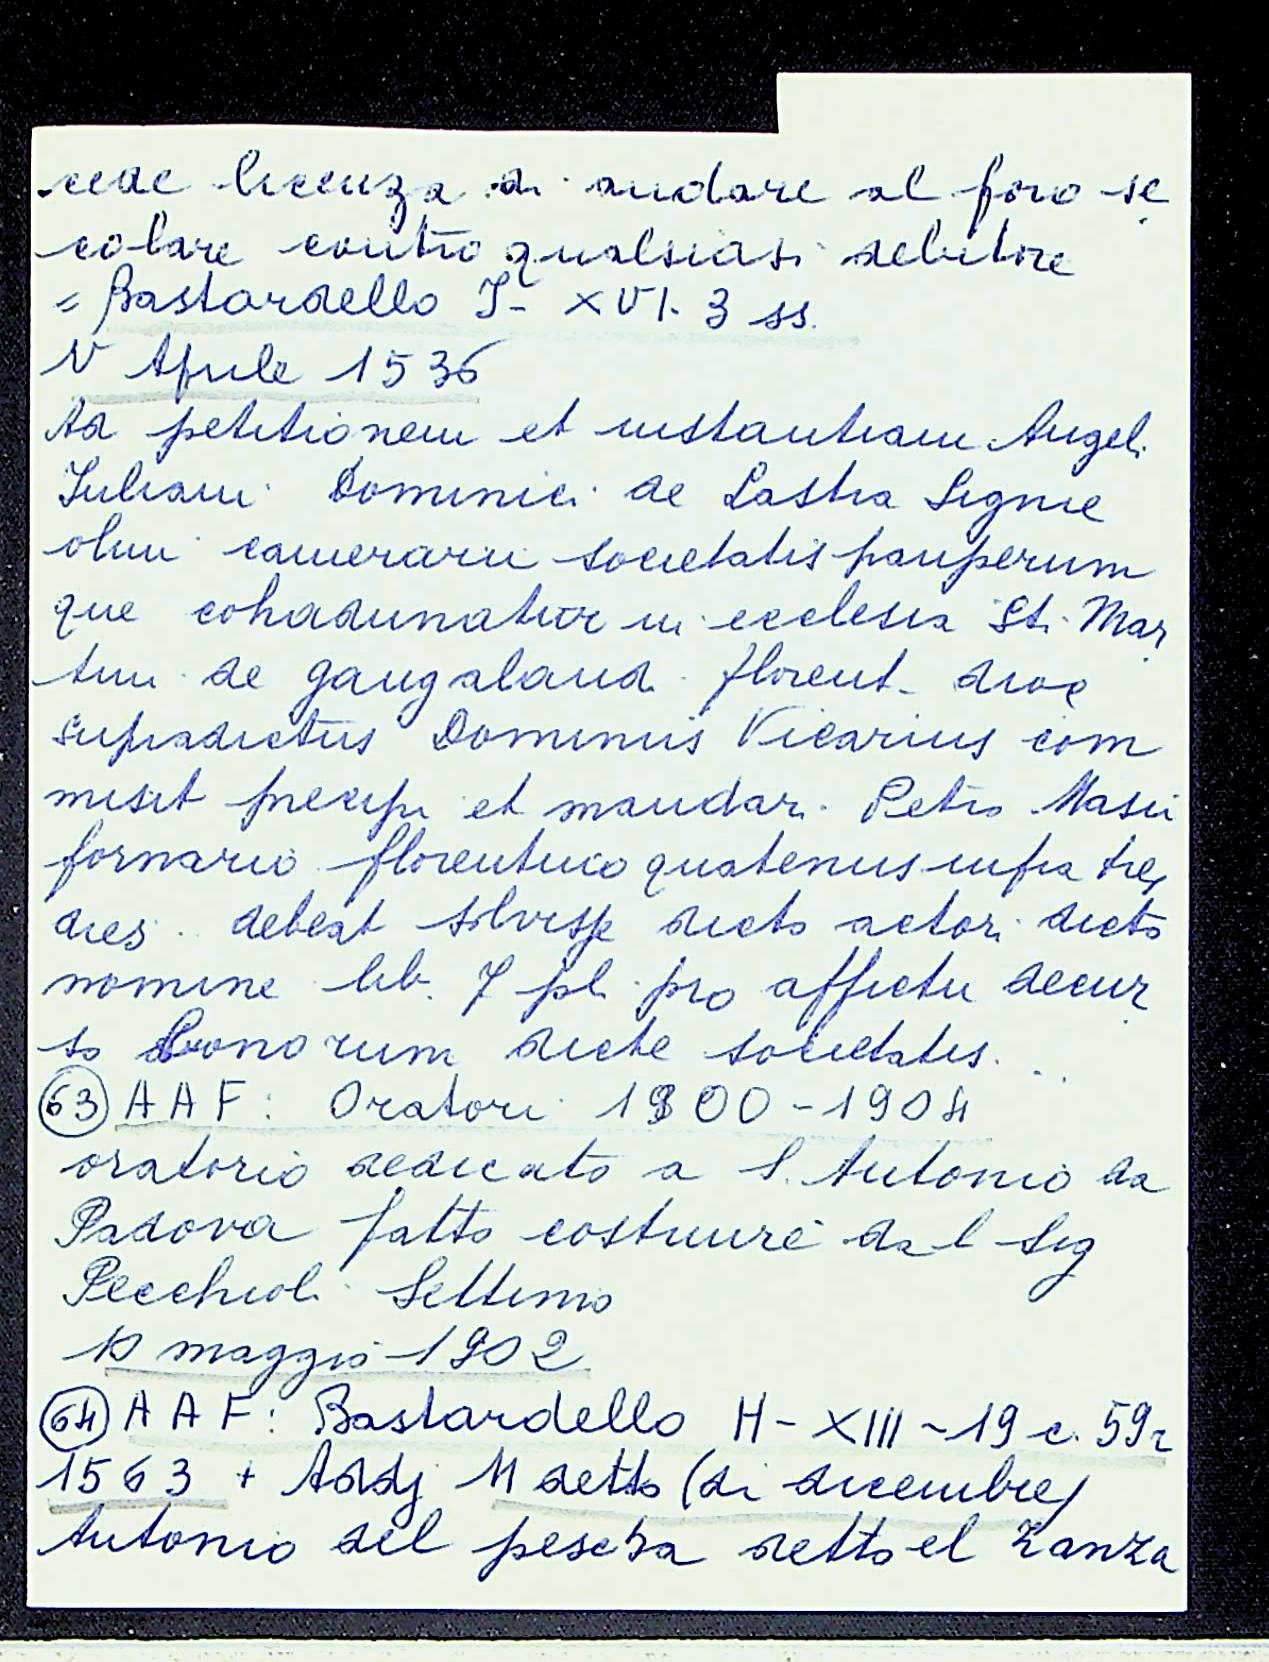 cede licenza di andare al foro se
colare contro qualsiasi debitore
= Bastardello I- XVI. 3 ss.
V Aprile 1536
Ad petitionem et instantiam Angeli
Iuliani Dominici de Lastra Signie
olim camerarii societatis pauperum
que cohadunatur in ecclesia Sti. Mar
tini de gangalandi florent. dioc
supradictus Dominus Vicarius com
misit precipi et mandari Petro Masii
fornario florentino quatenus infra tres
dies debeat solvisse dicto actori dicto
nomine lib. 7 pl. pro affictu decur
so bonorum dicte societatis.
63 AAF: Oratori 1800-1904
oratorio dedicato a S. Antonio da
Padova fatto costruire dal Sig
Pecchioli Settimo
10 maggio 1902
64 AAF: Bastardello H-XIII-19 c. 59r
1563 + Addj 11 detto (di dicembre)
Antonio del pescia detto el Zanza